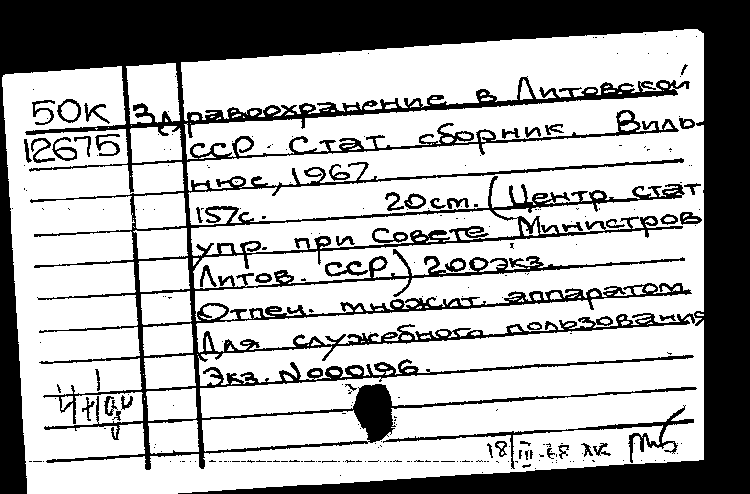 50К Здравоохранение в Литовской
12675 ССР. Стат. сборник. Виль-
нюс, 1967.
157с. 20см. (Центр. стат.
упр. при Совете Министров
Литов. ССР.) 200экз.
Отпеч. множит. аппаратом
Для служебного пользования
Экз. №000196.
18/III-68